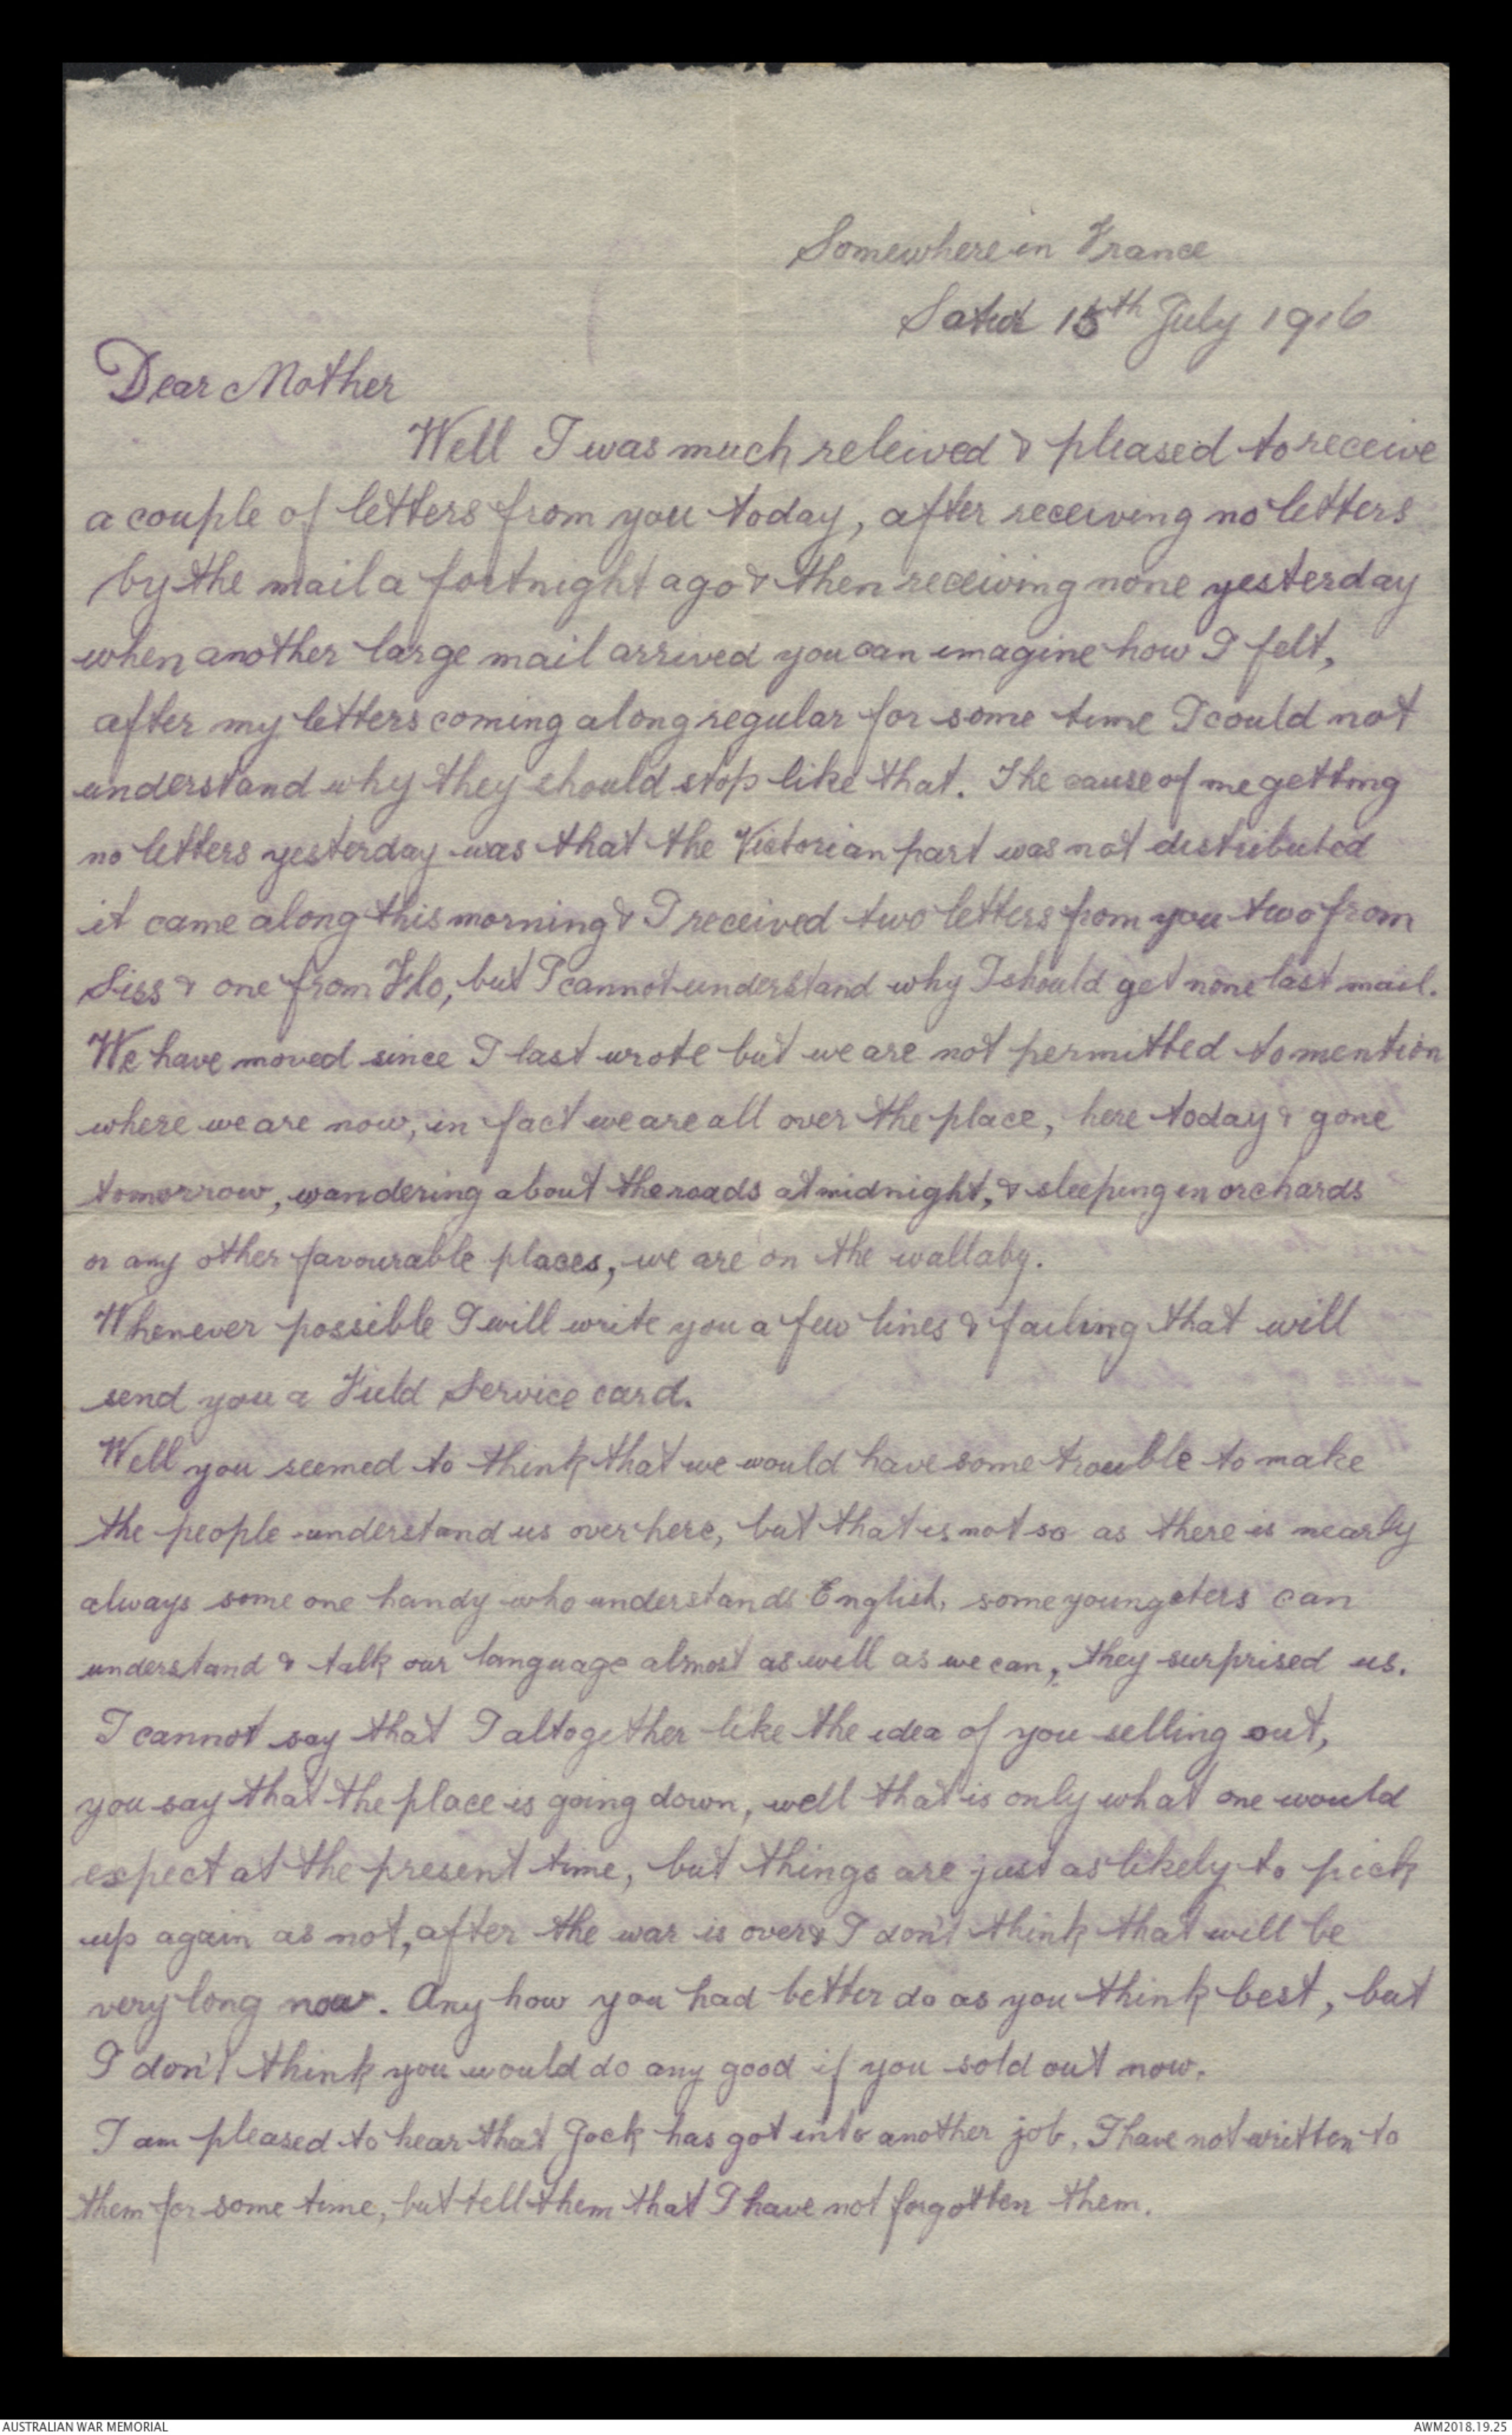 Somewhere in France
Satur 15th July 1916
Dear Mother
Well I was much releived & pleased to receive
a couple of letters from you today, after receiving no letters
by the mail a fortnight ago & then receiving none yesterday
when another large mail arrived you can imagine how I felt,
after my letters coming along regular for some time I could not
understand why they should stop like that. The cause of me getting
no letters yesterday was that the Victorian part was not distributed
it came along this morning & I received two letters from you two from
Siss & one from Flo, but I cannot understand why I should get none last mail.
We have moved since I last wrote but we are not permitted to mention
where we are now, in fact we are all over the place, here today & gone
tomorrow, wandering about the roads at midnight, & sleeping in orchards
or any other favourable places, we are on the wallaby.
Whenever possible I will write you a few lines & failing that will
send you a Field Service card.
Well you seemed to think that we would have some trouble to make
the people understand us over here, but that is not so as there is nearly
always some one handy who understands English, some youngsters can
understand & talk our language almost as well as we can, they surprised us.
I cannot say that I altogether like the idea of you selling out,
you say that the place is going down, well that is only what one would
expect at the present time, but things are just as likely to pick
up again as not, after the war is over & I don't think that will be
very long now. Any how you had better do as you think best, but
I don't think you would do any good if you sold out now.
I am pleased to hear that Jack has got into another job, I have not written to
them for some time, but tell them that I have not forgotten them.
AUSTRALIAN WAR MEMORIAL
AWM2018.19.25